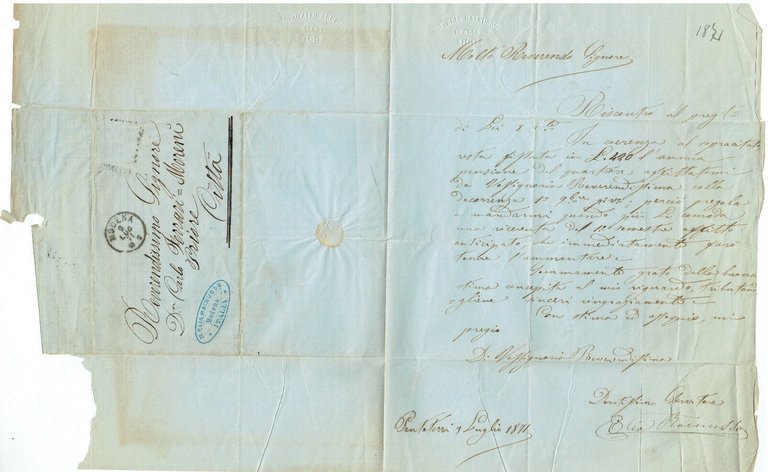 1871
Molto Reverendo Signore
Riscontro al pregto
di Lei 8 cte.
In coerenza al sopracitato
resta fissata in £.420 l'annua
pensione del quartiere affittatomi
da Vossignoria Reverendissima colla
decorrenza 1º 9bre pvo. perciò pregola
a mandarmi quando più Le comoda
una ricevuta del 1º semestre affitto
anticipato, che immediatamente farò
tenere l'ammontare.
Sommamente grato della buona
stima concepita al mio riguardo, tributan
=gliene sinceri ringraziamenti
Con stima ed ossequio, mi
pregio
Di Vossignoria Reverendissima
Devotissimo Servitore
Elia Rainusso
9 Luglio 1871
Reverendissimo Signore
Dn. Carlo Ferrari=Moreni
Priore
Città
MODENA
9
LUG
71
ELIA RAINUSSO
Modena
ITALIA